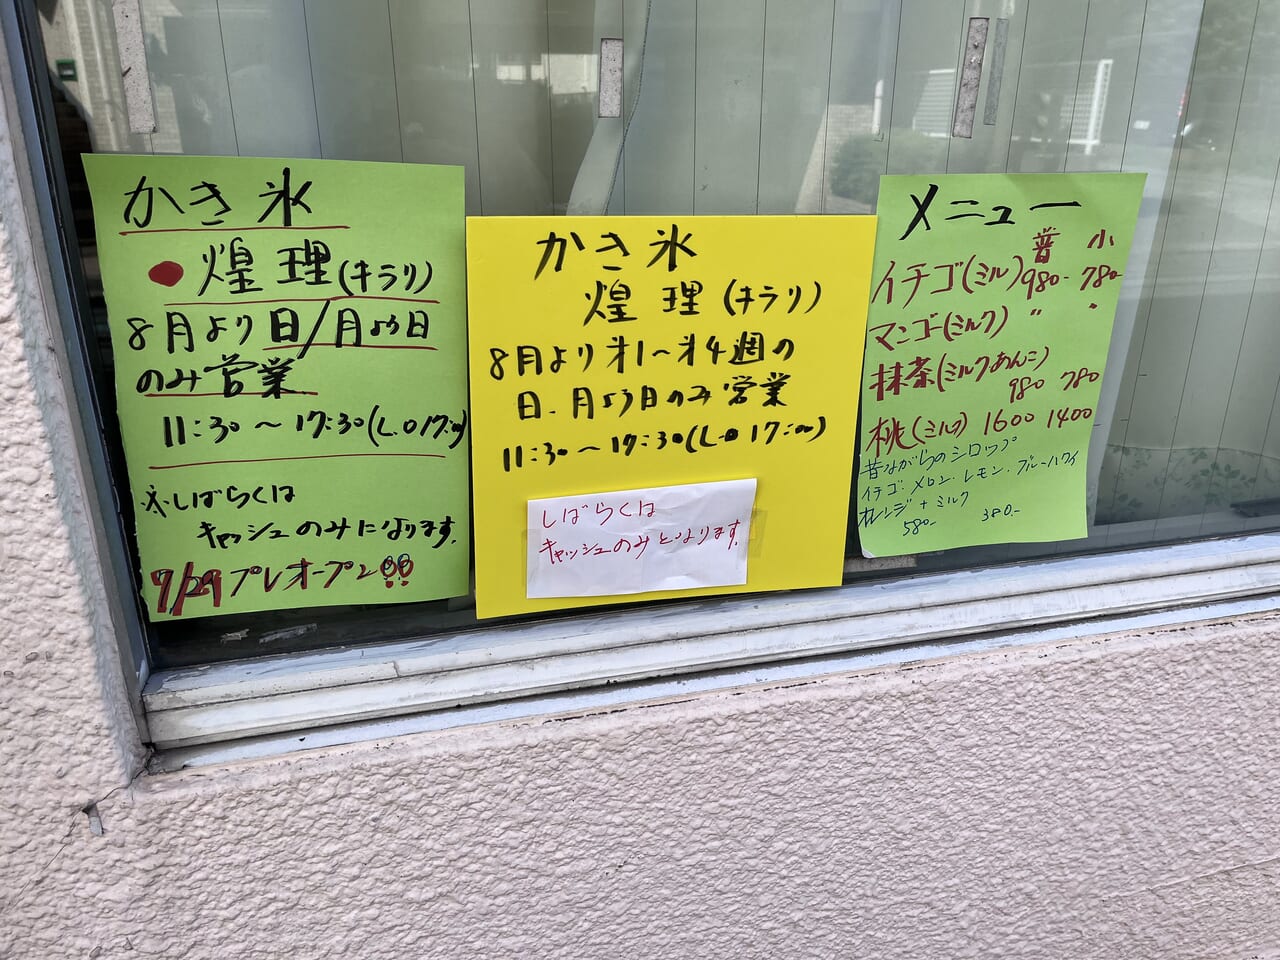 かき氷
煌理(キラリ)
8月より日/月よう日
のみ営業
11:30〜17:30(L.O17:00)
※しばらくは
キャッシュのみになります。
7/29プレオープン!!
かき氷
煌理(キラリ)
8月より才1〜才4週の
日、月よう日のみ営業
11:30〜17:30(L.O17:00)
しばらくは
キャッシュのみとなります。
メニュー
普 小
イチゴ(ミルク)980- 780-
マンゴー(ミルク) 〃 〃
抹茶(ミルクあんこ)
980 780
桃(ミルク) 1600 1400
昔ながらのシロップ
イチゴ.メロン.レモン.ブルーハワイ
オレンジ+ミルク
580- 380-